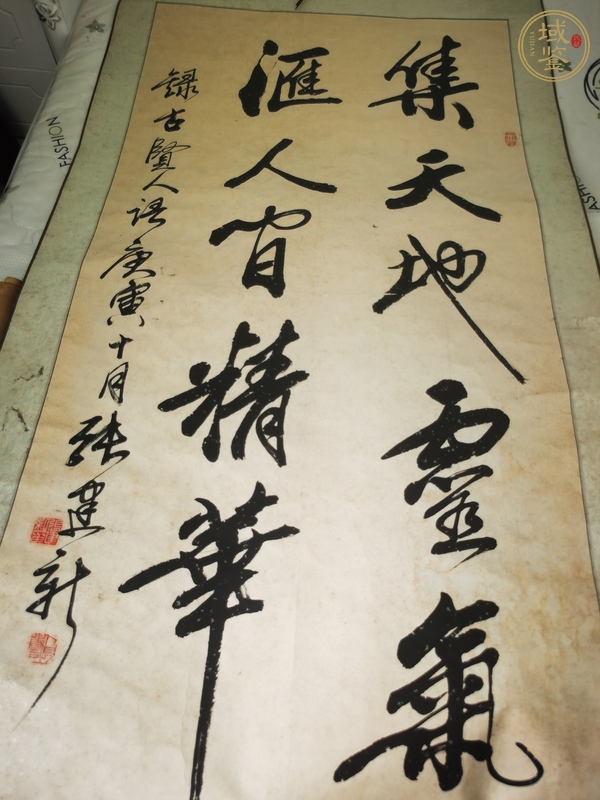 集天地靈氣
滙人间精華
録古賢人语庚寅十月張建新
域鉴
YUJIAN
FASHION